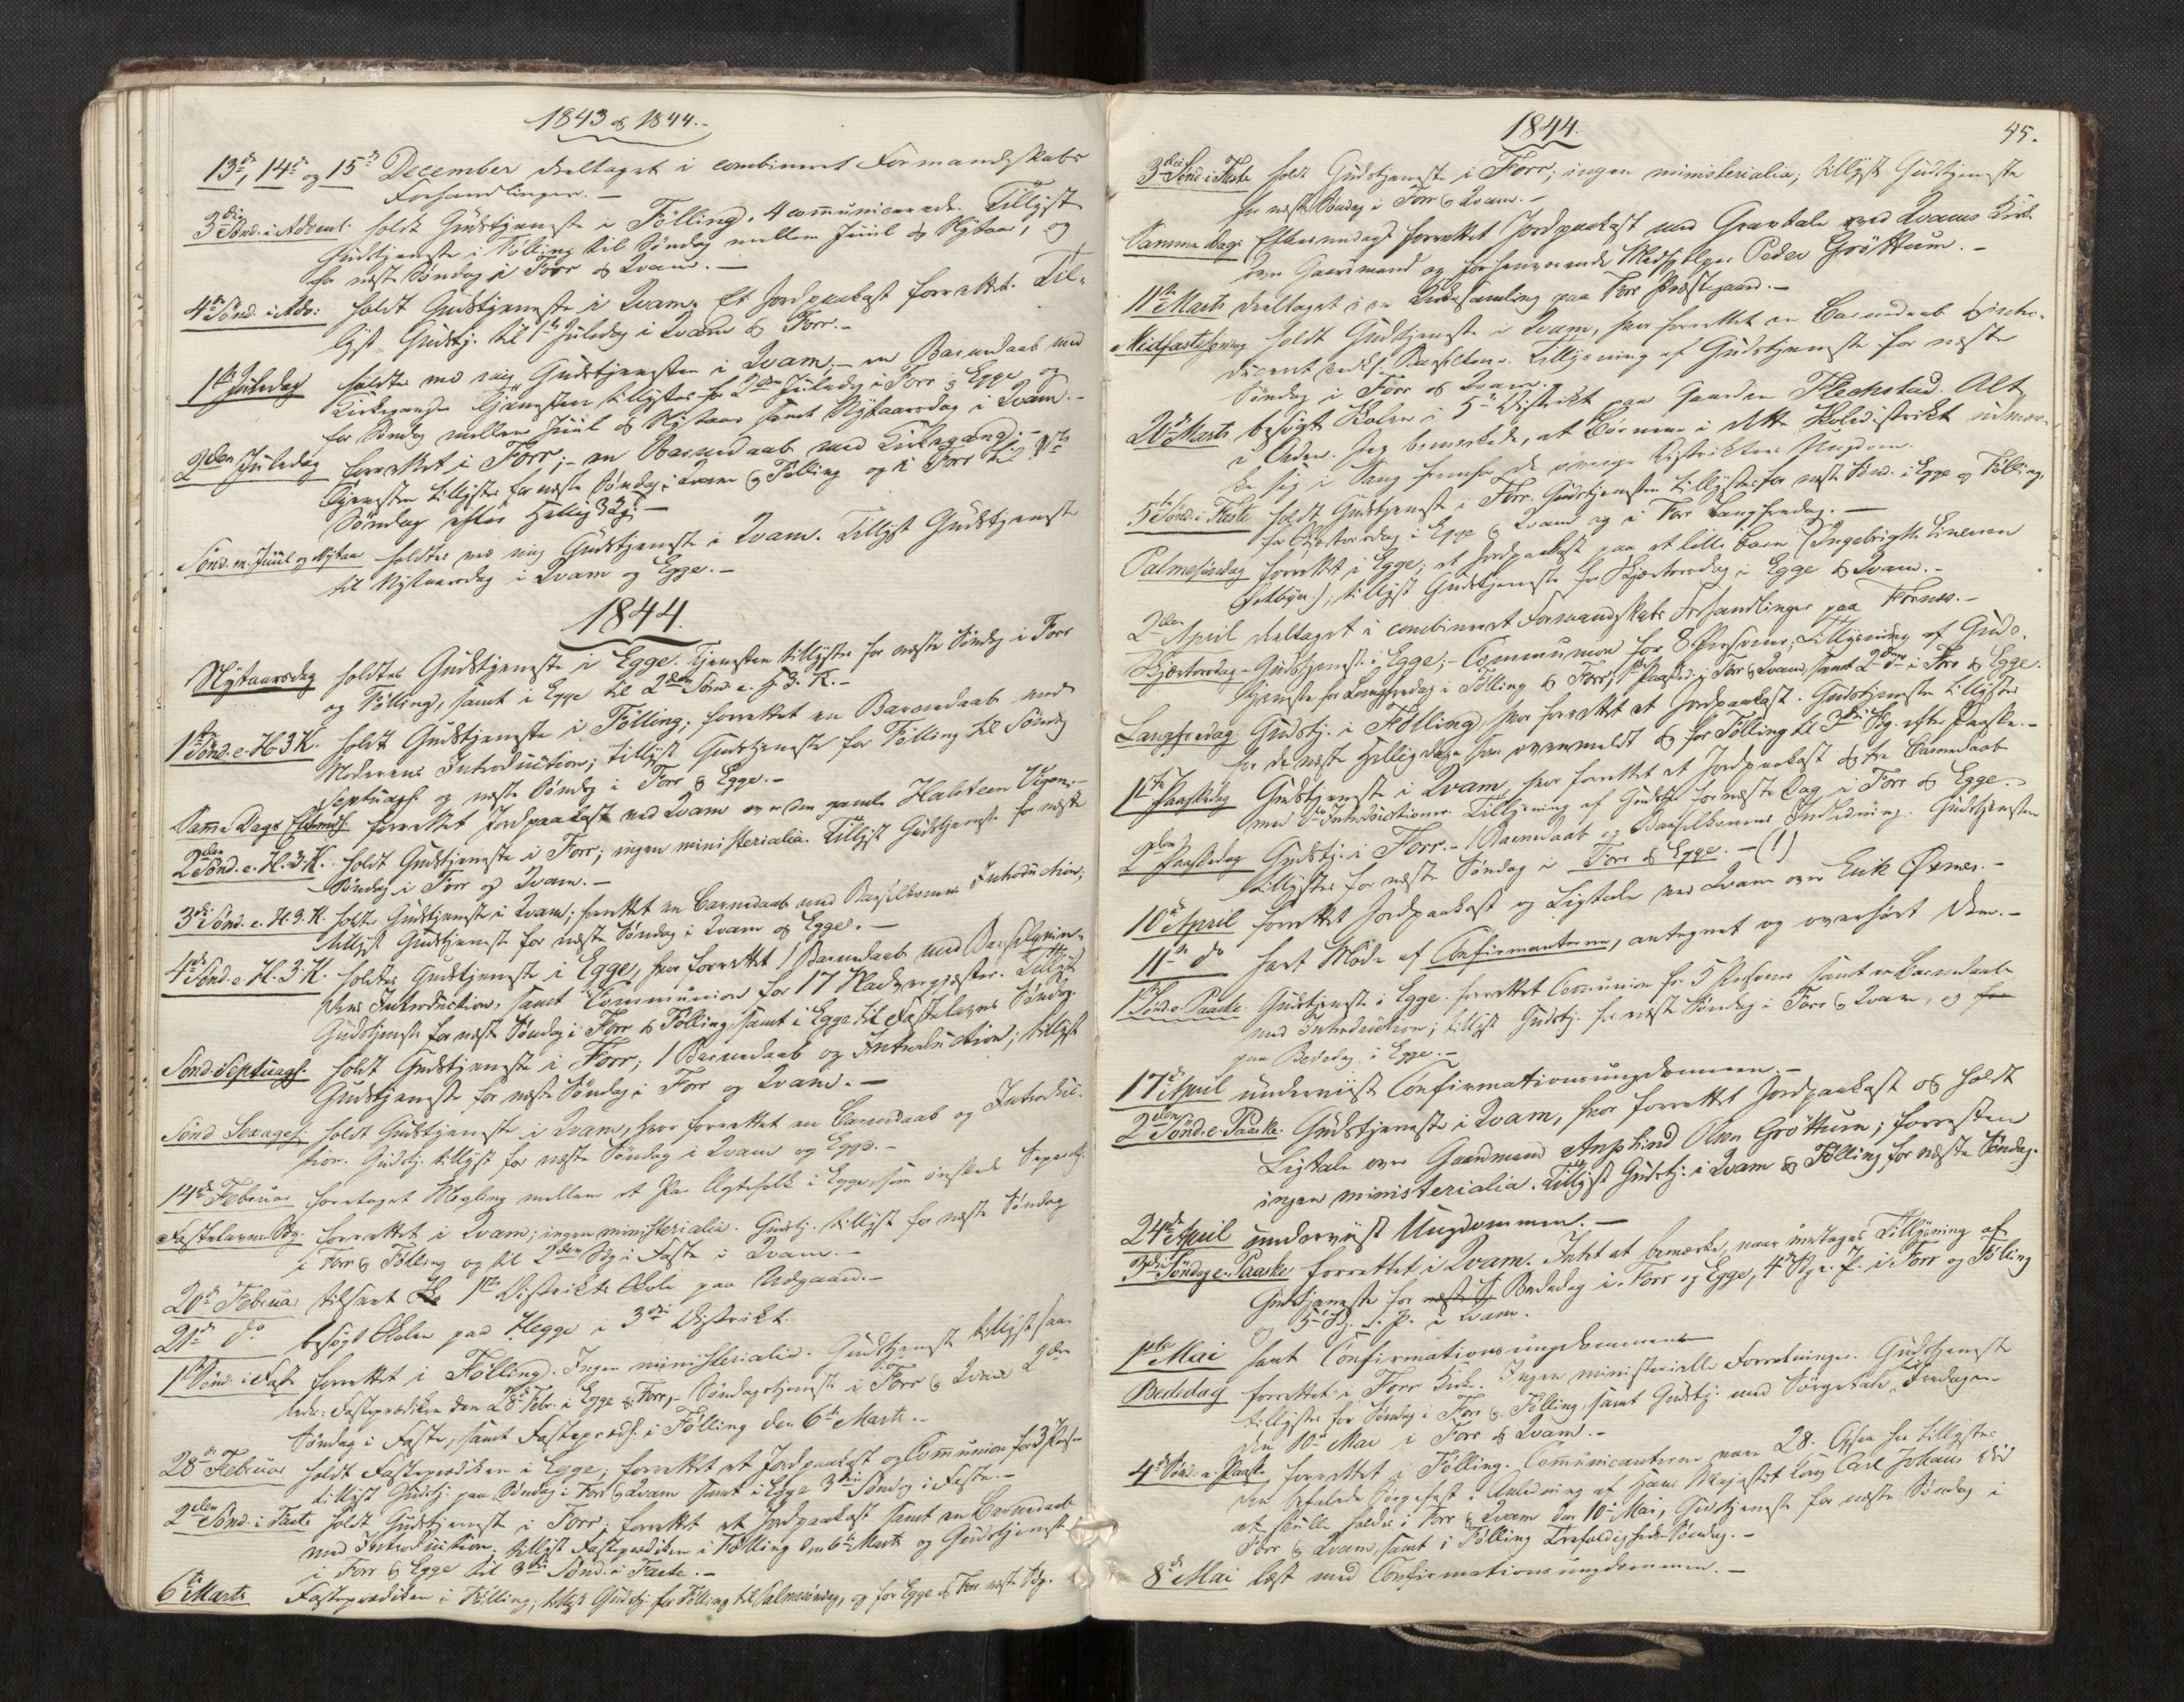 1843 & 1844.-
13de, 14de og 15de December deeltaget i combineret Formandskabs
Forhandlinger.-
3die Sønd. i Advent. holdt Gudstjeneste i Fölling. 4 communicerede. Tillyst
Gudstjeneste i Fölling til Söndag mellem Juul & Nytaar, og
for næste Söndag i Forr & Qvam.-
4de Sönd. i Adv: holdt Gudstjeneste i Qvam. Et Jordpaakast forrettet. Til-
lyst Gudstj. til 1ste Juledag i Qvam & Forr.-
1ste Juledag holdtes ved mig Gudstjenesten i Qvam;- en Barnedaab med
Kirkegang. Tjenesten tillystes for 2den Juledag i Forr & Egge og
for Söndag mellem Juul & Nytaar samt Nytaarsdag i Qvam.-
2den Juledag forrettet i Forr;- en Barnedaab med Kirkegang;-
Tjenesten tillystes for næste Söndag i Qvam & Fölling og i Forr til 1ste
Söndag efter Hellig 3 Kg.-
Sönd. m. Juul og Nytaar holdtes ved mig Gudstjeneste i Qvam. Tillyst Gudstjeneste
til Nytaarsdag i Qvam og Egge.-
1844.
Nytaarsdag holdtes Gudstjeneste i Egge. Tjenesten tillystes for næste Söndag i Forr
og Fölling, samt i Egge til 2den Sönd. e. H. 3. K.-
1ste Sönd. e. H. 3 K. holdt Gudstjeneste i Fölling; forrettet en Barnedaab med
Moderens Introduction; tillyst Gudstjeneste for Fölling til Söndag
Septuages. og næste Söndag i Forr & Egge.-
Samme Dags Eftermid. forrettet Jordpaakast ved Qvam over den gamle Halsteen
2den Sönd. e. H. 3. K. holdt Gudstjeneste i Forr; ingen ministerialia. Tillyst Gudstjeneste for næste
Söndag i Forr og Qvam.-
3die Sönd. e. H. 3. K. holdt Gudstjeneste i Qvam; forrettet en Barnedaab med Barselkonens Introduction;
tillyst Gudstjeneste for næste Söndag i Qvam og Egge.-
4de Sönd. e. H. 3. K. holdtes Gudstjeneste i Egge, hvor forrettet 1 Barnedaab med Barselqvin-
dens Introduction, samt Communion for 17 Nadvergjæster. Tillyst
Gudstjeneste for næste Söndag i Forr & Fölling, samt i Egge til Fastelavns Söndag.
Sönd. Septuages. holdt Gudstjeneste i Forr; 1 Barnedaab og Introduction; tillyst
Gudstjeneste for næste Söndag i Forr og Qvam.-
Sönd Sexages. holdt Gudstjeneste i Qvam, hvor forrettet en Barnedaab og Introduc-
tion. Gudstj. tillyst for næste Söndag i Qvam og Egge.-
14de Februar foretaget Megling mellem et Par Ægtefolk i Egge, som önskede
Fastelavns Sdg. forrettet i Qvam; ingen ministerialia. Gudstj. tillyst for næste Söndag
i Forr & Fölling og til 2den Sdg i Faste i Qvam.-
20de Februar tilseet 1ste Distrikts Skole paa
21de do besögt Skolen paa Hegge i 3die Distrikt.
1ste Sönd. i Faste forrettet i Fölling. Ingen ministerialia. Gudstjeneste tillyst saa-
ledes: Fasteprædiken den 28de Febr. i Egge & Forr,- Söndagstjeneste i Forr & Qvam 2den
Söndag i Faste, samt Fastepræd. i Fölling den 6te Marts.-
28de Februar holdt Fasteprædiken i Egge; forrettet et Jordpaakast og Communion for 3
tillyst Gudstj. paa Söndag i Forr & Qvam samt i Egge 3die Söndag i Faste.-
2den Sönd. i Faste holdt Gudstjeneste i Forr; forrettet et Jordpaakast samt en Barnedaab
med Introduction; tillyst Fasteprædiken i Fölling den 6te Marts og Gudstjeneste
i Forr & Egge til 3die Sönd. i Faste.-
6te Marts Fasteprædiken i Fölling; tillyst Gudstj. for Fölling til Palmesöndag, og for Egge & Forr næste Sdg.
1844. 45.
3die Sönd i Faste holdt Gudstjeneste i Forr; ingen ministerialia; tillyst Gudstjeneste
for næste Söndag i Forr & Qvam.-
Samme Dags Eftermiddag forrettet Jordpaakast med Gravtale ved Qvams Kirke
over Gaardmand og forhenværende Medhjelper Peder Gröttum.-
11te Marts deeltaget i en paa Forr Præstegaard.-
Midfastesöndag holdt Gudstjeneste i Qvam, hvor forrettet en Barnedaab & intro-
duceret Barselkone. Tillysning af Gudstjeneste for næste
Söndag i Forr & Qvam.-
20de Marts besögt Skolen i 5te Distrikt paa Gaarden Flekstad. Alt
i Orden. Jeg bemærkede, at Börnene i dette Skoledistrikt udmær-
ke sig i Sang fremfor de övrige Distrikters Ungdom.
5te Sönd. i Faste holdt Gudstjeneste i Forr. Gudstjenesten tillystes for næste Sönd. i Egge og Fölling,
for Skjærtorsdag i Egge & Qvam og i Forr Langfredag.-
Palmesöndag forrettet i Egge; et Jordpaakast paa et lille Barn (Ingebrigt
); tillyst Gudstjeneste for Skjærtorsdag i Egge & Qvam.-
2den April deeltaget i combineret Formandskabs Forhandlinger paa
Skjærtorsdag - Gudstjeneste i Egge;- Communion for 8 Personer; Tillysning af Guds-
tjeneste for Langfredag i Fölling & Forr, 1ste Paaskd. i Forr & Qvam, samt 2den do i Forr & Egge.
Langfredag Gudstj. i Fölling, hvor forrettet et Jordpaakast. Gudstjenesten tillystes
for de næste Helligdage som ovenmeldt & for Fölling til 3die Sdg. efter Paaske.-
1ste Paaskedag Gudstjeneste i Qvam, hvor forrettet et Jordpaakast & tre Barnedaab
med Introductioner. Tillysning af Gudstj. for næste Dag i Forr & Egge.-
2den Paaskedag Gudstj. i Forr.- 1 Barnedaab og Barselkonens Indledning. Gudstjenesten
tillystes for næste Söndag i Forr & Egge.- (!)
10de April forrettet Jordpaakast og Ligtale ved Qvam over Erik Öxnes.-
11te do havt Möde af Confirmanterne, antegnet og overhört dem.-
1ste Sönd. e. Paaske. Gudstjeneste i Egge. forrettet Communion for 5 Personer samt en Barnedaab
med Introduction; tillyst Gudstj. for næste Söndag i Forr & Qvam, og for
paa Bededag i Egge.-
17de April underviist Confirmationsungdommen.-
2den Sönd. e. Paaske. Gudstjeneste i Qvam, hvor forrettet Jordpaakast & holdt
Ligtale over Gaardmand Olsen Gröttum; forresten
ingen ministerialia. Tillyst Gudstj. i Qvam & Fölling for næste Söndag.
24de April underviist Ungdommen.-
3die Söndag e. Paaske forrettet i Qvam. Intet at bemærke, naar undtages Tillysning af
Gudstjeneste for næste S Bededag i Forr og Egge, 4de Sdg. e. P. i Forr og Fölling
og 5te Sdg. e. P. i Qvam.
1ste Mai havt Confirmationsungdommen
Bededag forrettet i Forr Kirke. Ingen ministerielle Forretninger. Gudstjeneste
tillystes for Söndag i Forr & Fölling, samt Gudstj. med Sörgetale Fredagen
den 10de Mai i Forr & Qvam.-
4de Sönd. e. Paaske forrettet i Fölling. Communicanterne vare 28. Ogsaa her tillystes
den befalede Sörgefest i Anledning af Hans Majestæt Kong Carl Johans Död
at skulle holdes i Forr & Qvam den 10de Mai, Gudstjeneste for næste Söndag i
Forr & Qvam, samt i Fölling Trefoldigheds Söndag.-
8de Mai læst med Confirmationsungdommen.-